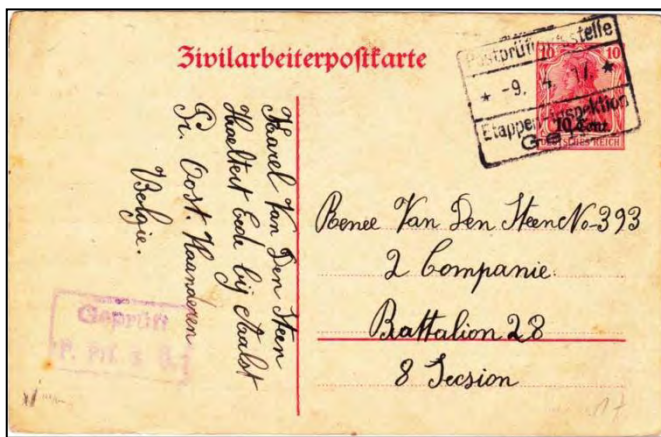 Zivilarbeiterpostkarte
10 10
Postprüfungsstelle
* -9. 4. 17. *
Etappen-Inspektion
10 Cent.
DEUTSCHES REICH
Karel Van Den Steen
Haeltert Eede bij Aalst
Pr. Oost. Vlaanderen
Belgie.
Renee Van Den Steen No-393
2 Companie
Battalion 28
8 Secsion
Geprüft
17